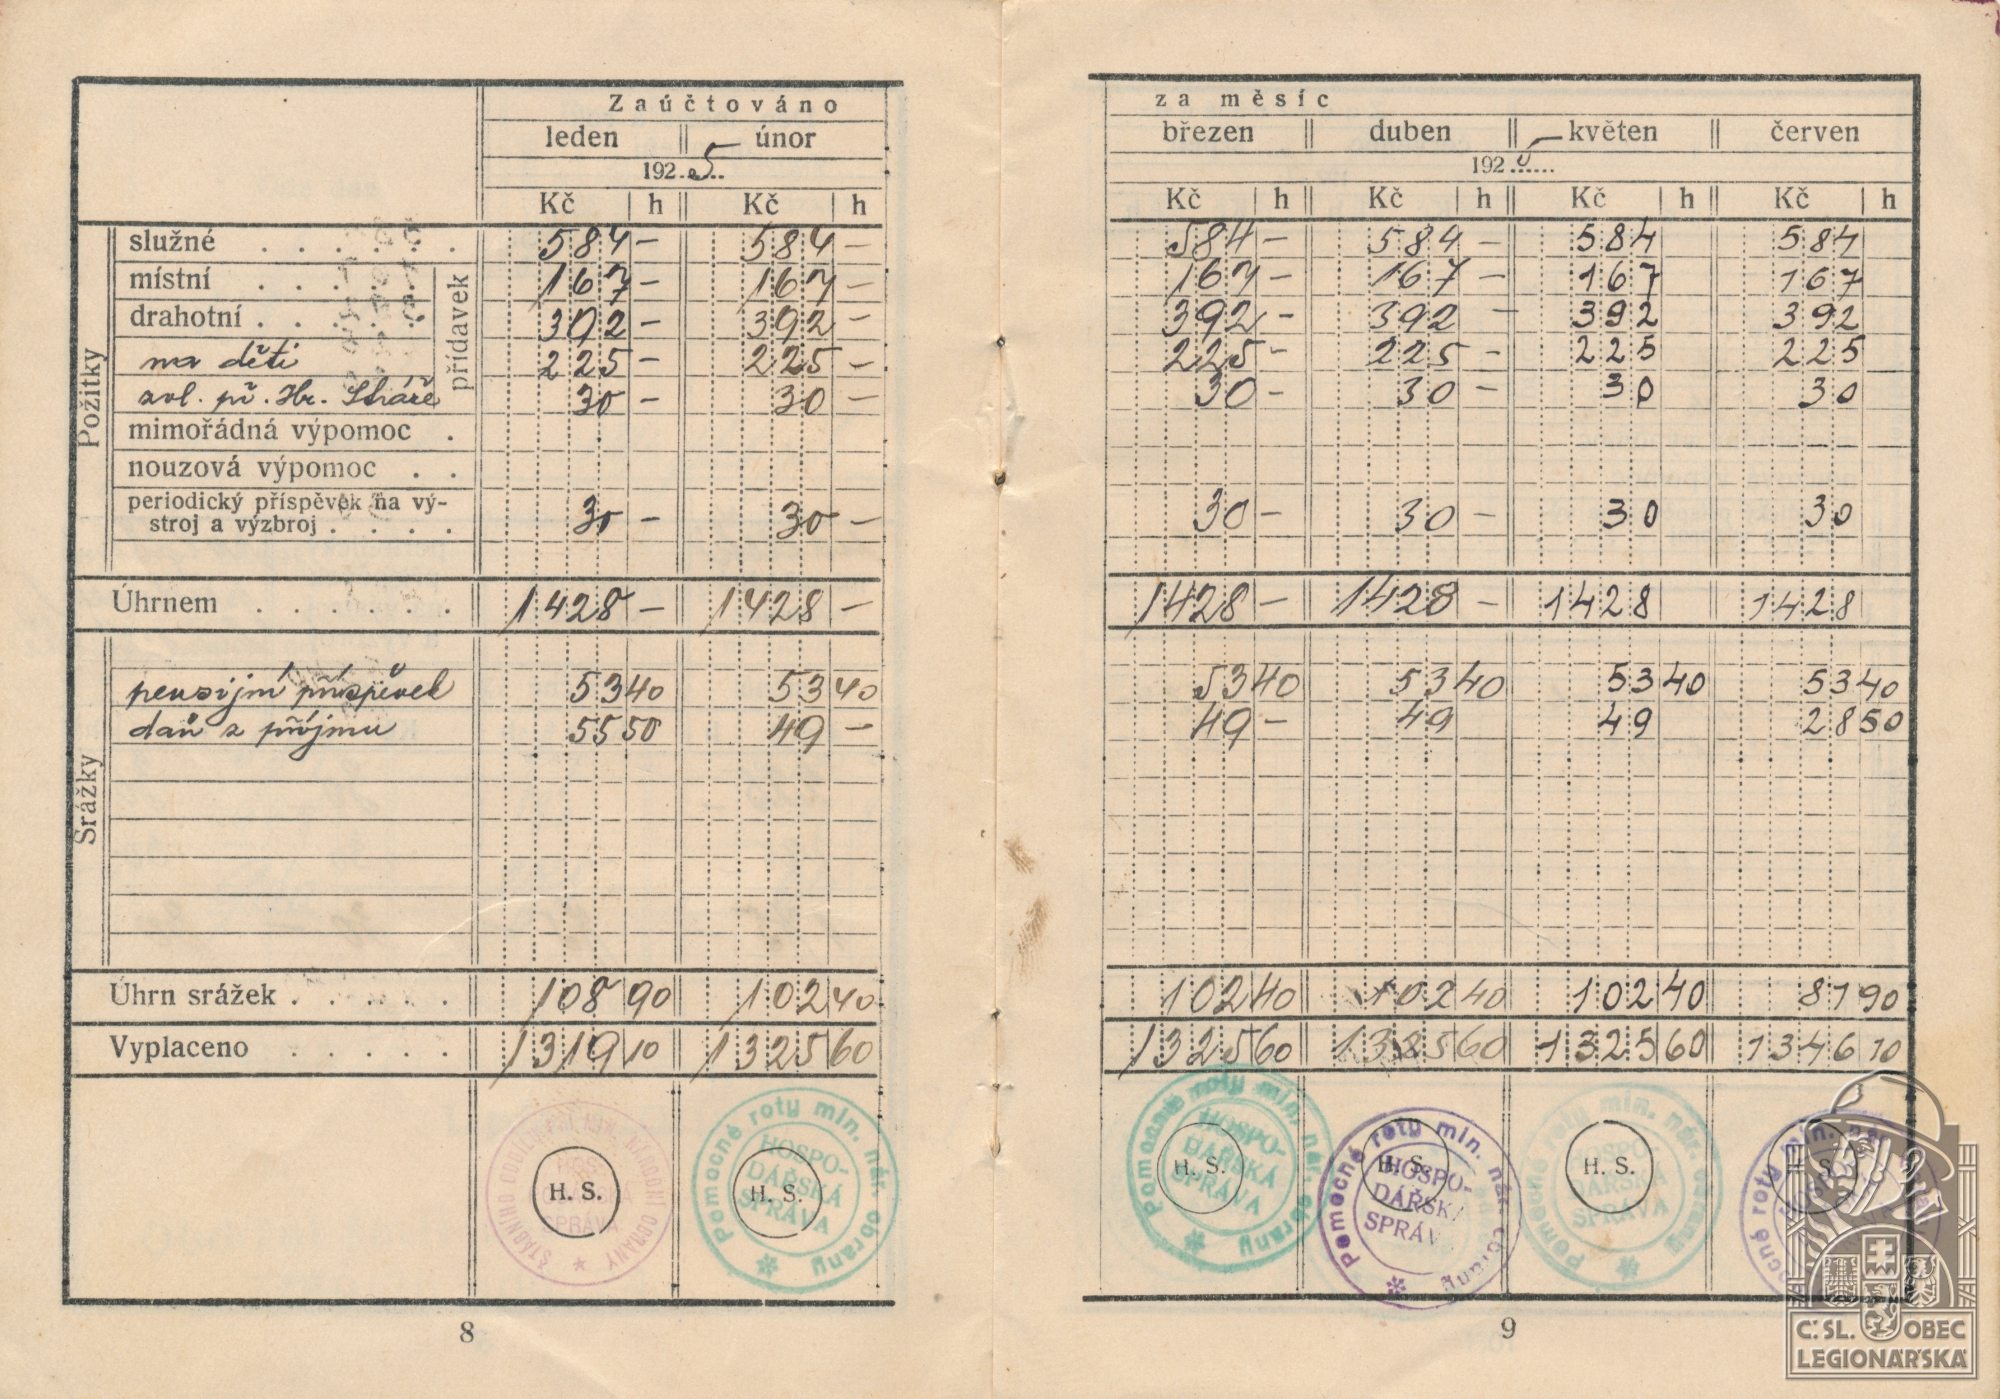 Zaúčtováno za měsíc
leden únor březen duben květen červen
1925 192
Kč h Kč h Kč h Kč h Kč h Kč h
Požitky
přídavek
služné . . . . . . 584 – 584 – 584 – 584 – 584 584
místní . . . . . 167 – 167 – 167 – 167 – 167 167
drahotní . . . . . 392 – 392 – 392 – 392 – 392 392
na děti 225 – 225 – 225 – 225 – 225 225
zvl. př. Hr. Stráže 30 – 30 – 30 – 30 – 30 30
mimořádná výpomoc .
nouzová výpomoc . .
periodický příspěvek na vý-
stroj a výzbroj . . . . 30 – 30 – 30 – 30 – 30 30
Úhrnem . . . . . . 1428 – 1428 – 1428 – 1428 – 1428 1428
Srážky
pensijní příspěvek 53 40 53 40 53 40 53 40 53 40 53 40
daň z příjmu 55 50 49 – 49 – 49 49 28 50
Úhrn srážek . . . . . 108 90 102 40 102 40 102 40 102 40 81 90
Vyplaceno . . . . . 1319 10 1325 60 1325 60 1325 60 1325 60 1346 10
H. S. H. S. H. S. H. S. H. S. H. S.
Pomocné roty min. nár. obrany
HOSPO-
DÁŘSKÁ
SPRÁVA
Pomocné roty min. nár. obrany
HOSPO-
DÁŘSKÁ
SPRÁVA
Pomocné roty min. nár. obrany
HOSPO-
DÁŘSKÁ
SPRÁVA
Pomocné roty min. nár. obrany
HOSPO-
DÁŘSKÁ
SPRÁVA
8
9
Č. SL. OBEC
LEGIONÁŘSKÁ